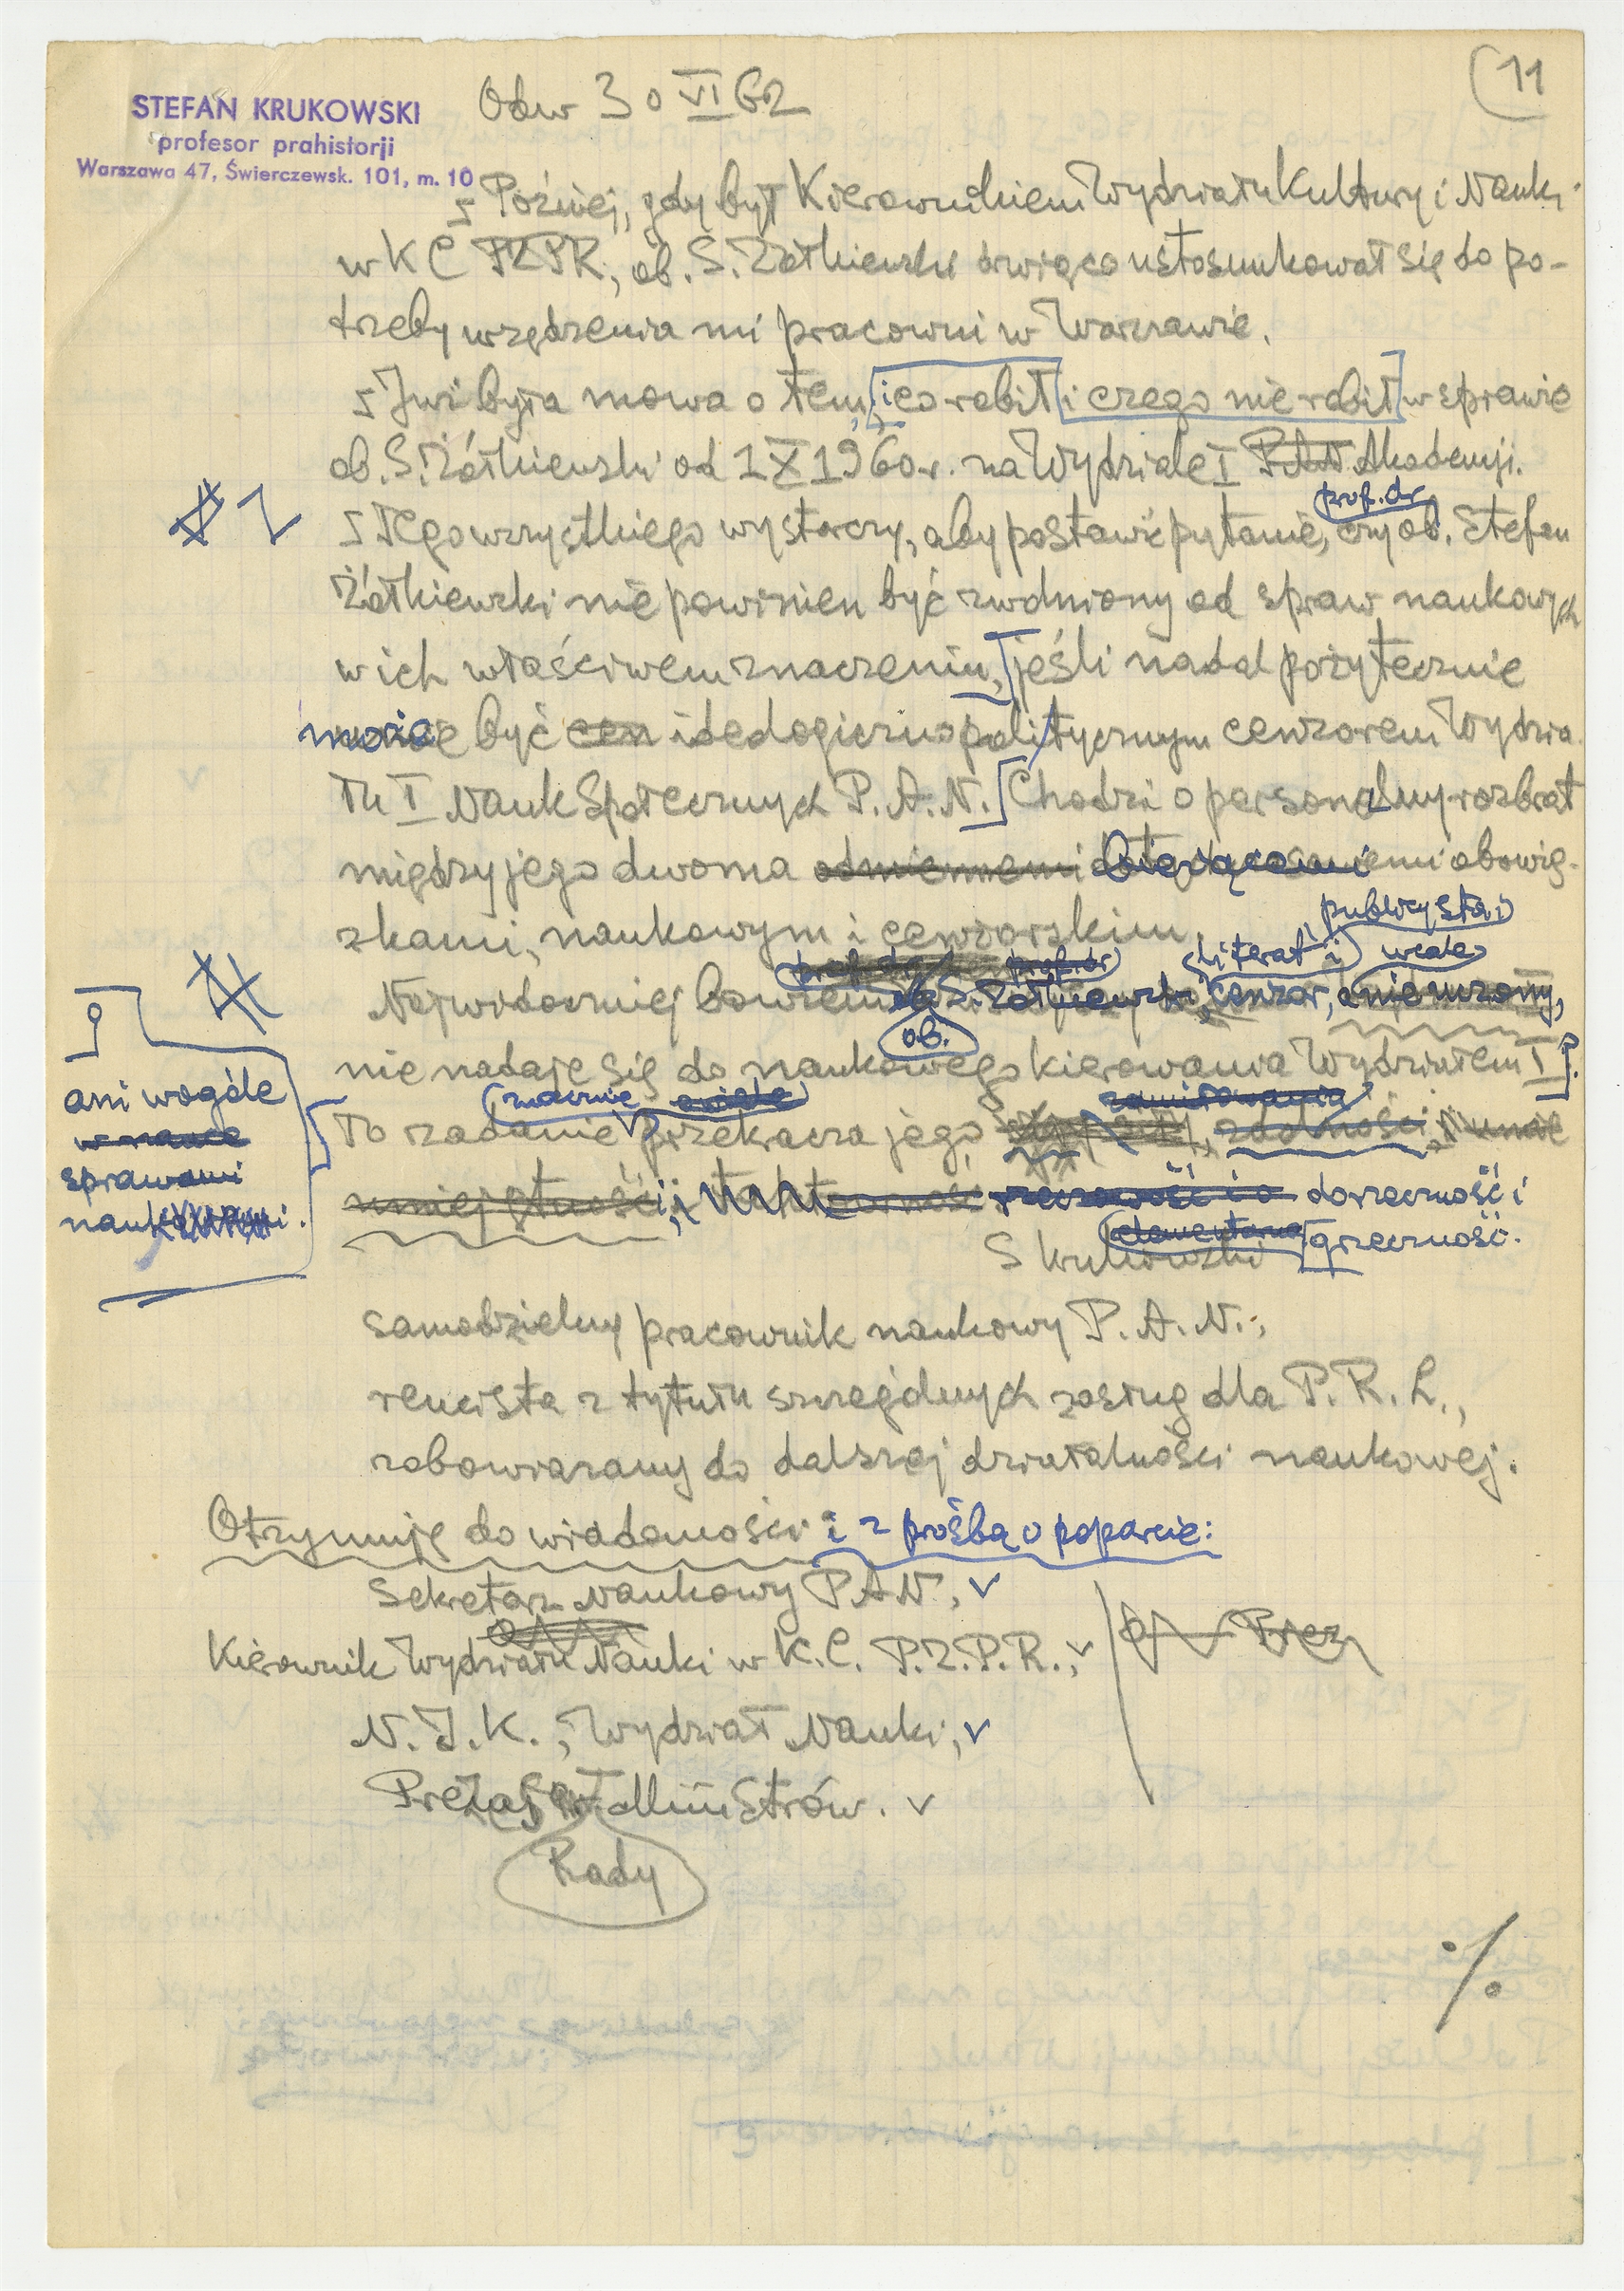 (11
STEFAN KRUKOWSKI
profesor prahistorji
Warszawa 47, Świerczewsk. 101, m. 10
Odw 30 VI 62
Później, gdy był Kierownikiem Wydziału Kultury i Nauki
w KC PZPR, ob. S. Żółkiewski drwiąco ustosunkował się do po-
trzeby urządzenia mi pracowni w Warszawie.
Już była mowa o tem, co robił i czego nie robił w sprawie
ob. S. Żółkiewski od 1 X 1960 r. na Wydziale I PAN Akademji.
prof. dr
Z tego wszystkiego wystarczy, aby postawić pytanie, czy ob. Stefan
Żółkiewski nie powinien być zwolniony od spraw naukowych
w ich właściwem znaczeniu, jeśli nadal pożytecznie
może być cen ideologiczno politycznym cenzorem Wydzia-
łu I Nauk Społecznych P. A. N. Chodzi o personalny rozbrat
między jego dwoma odmiennemi obowią-
zkami, naukowym i cenzorskim.
publicysta i
prof. dr literat i wcale
Najwidoczniej bowiem S. Żółkiewski, cenzor, a nie uczony,
ob.
nie nadaje się do naukowego kierowania Wydziałem I.
ani wogóle
w nauce
sprawami
naukowemi.
znacznie o wiele zamiłowania
To zadanie przekracza jego zdolności,
umiejętności, rzeczowość i o dorzeczność i
elementarna grzeczność.
S Krukowski
samodzielny pracownik naukowy P. A. N.,
rencista z tytułu szczególnych zasług dla P. R. L.,
zobowiązany do dalszej działalności naukowej.
Otrzymuję do wiadomości i z prośbą o poparcie:
Sekretarz Naukowy PAN, v
Kierownik Wydziału Nauki w K. C. P. Z. P. R., v
Prez
N. I. K., Wydział Nauki, v
Prezes Ministrów. v
Rady
%